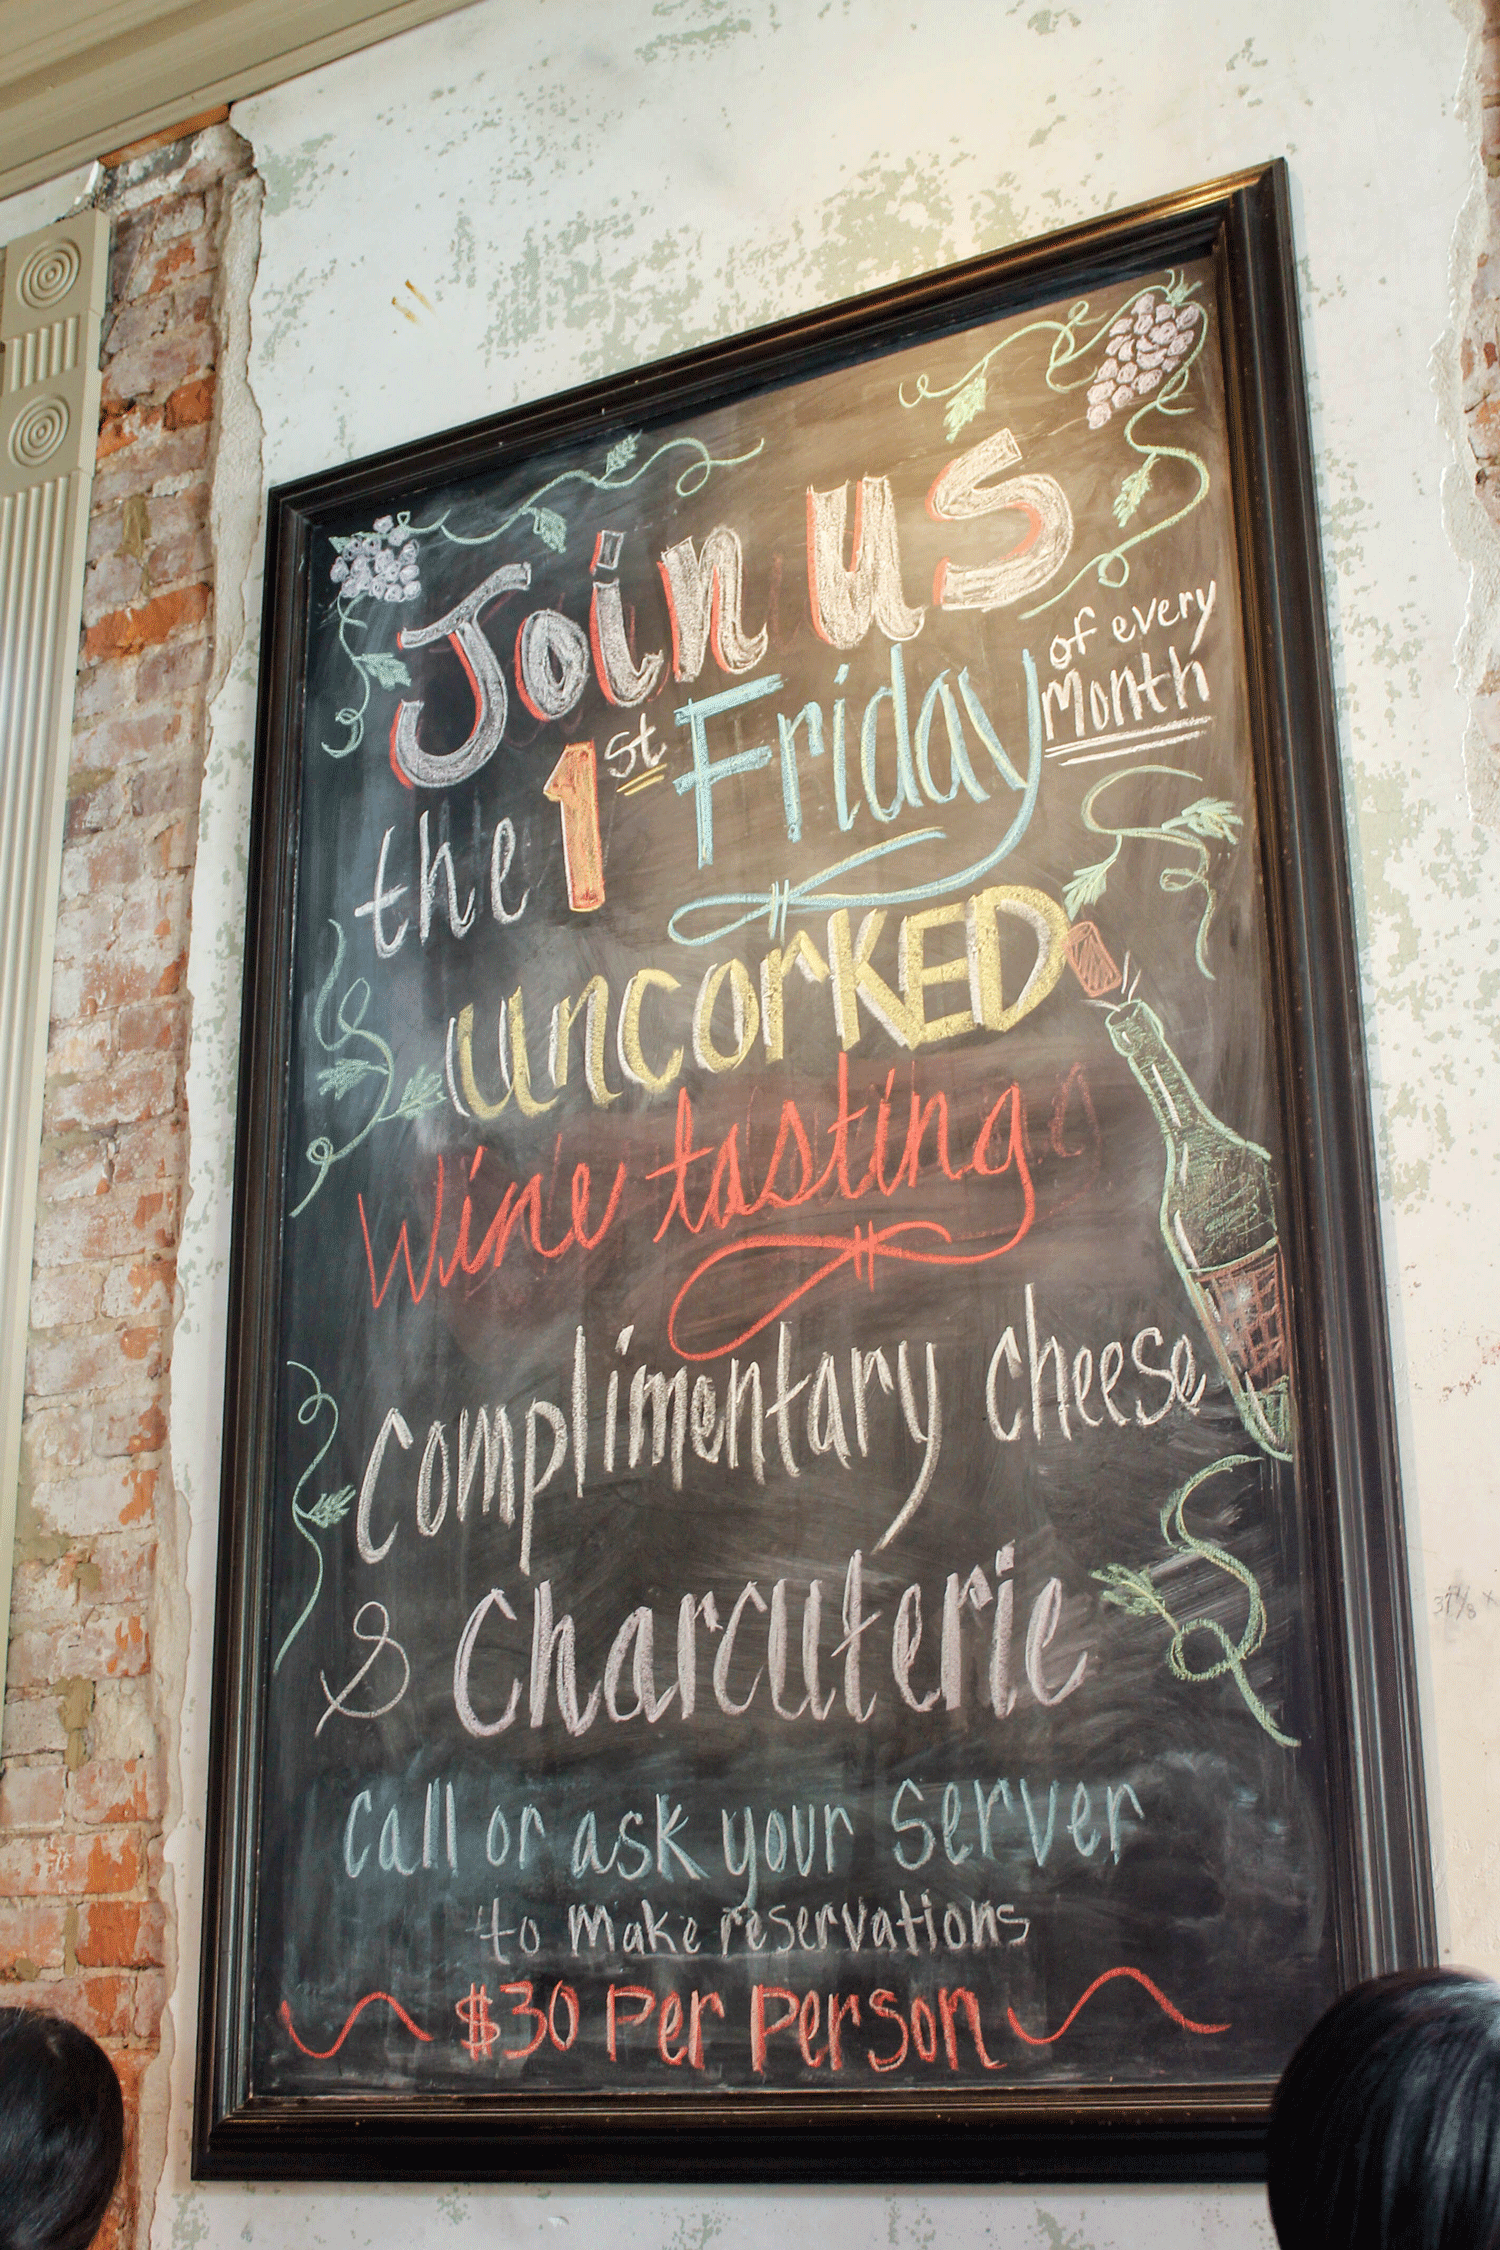 Join us
the 1st Friday of every Month
uncorKED
Wine tasting
Complimentary cheese
& Charcuterie
Call or ask your Server
to make reservations
$30 Per Person